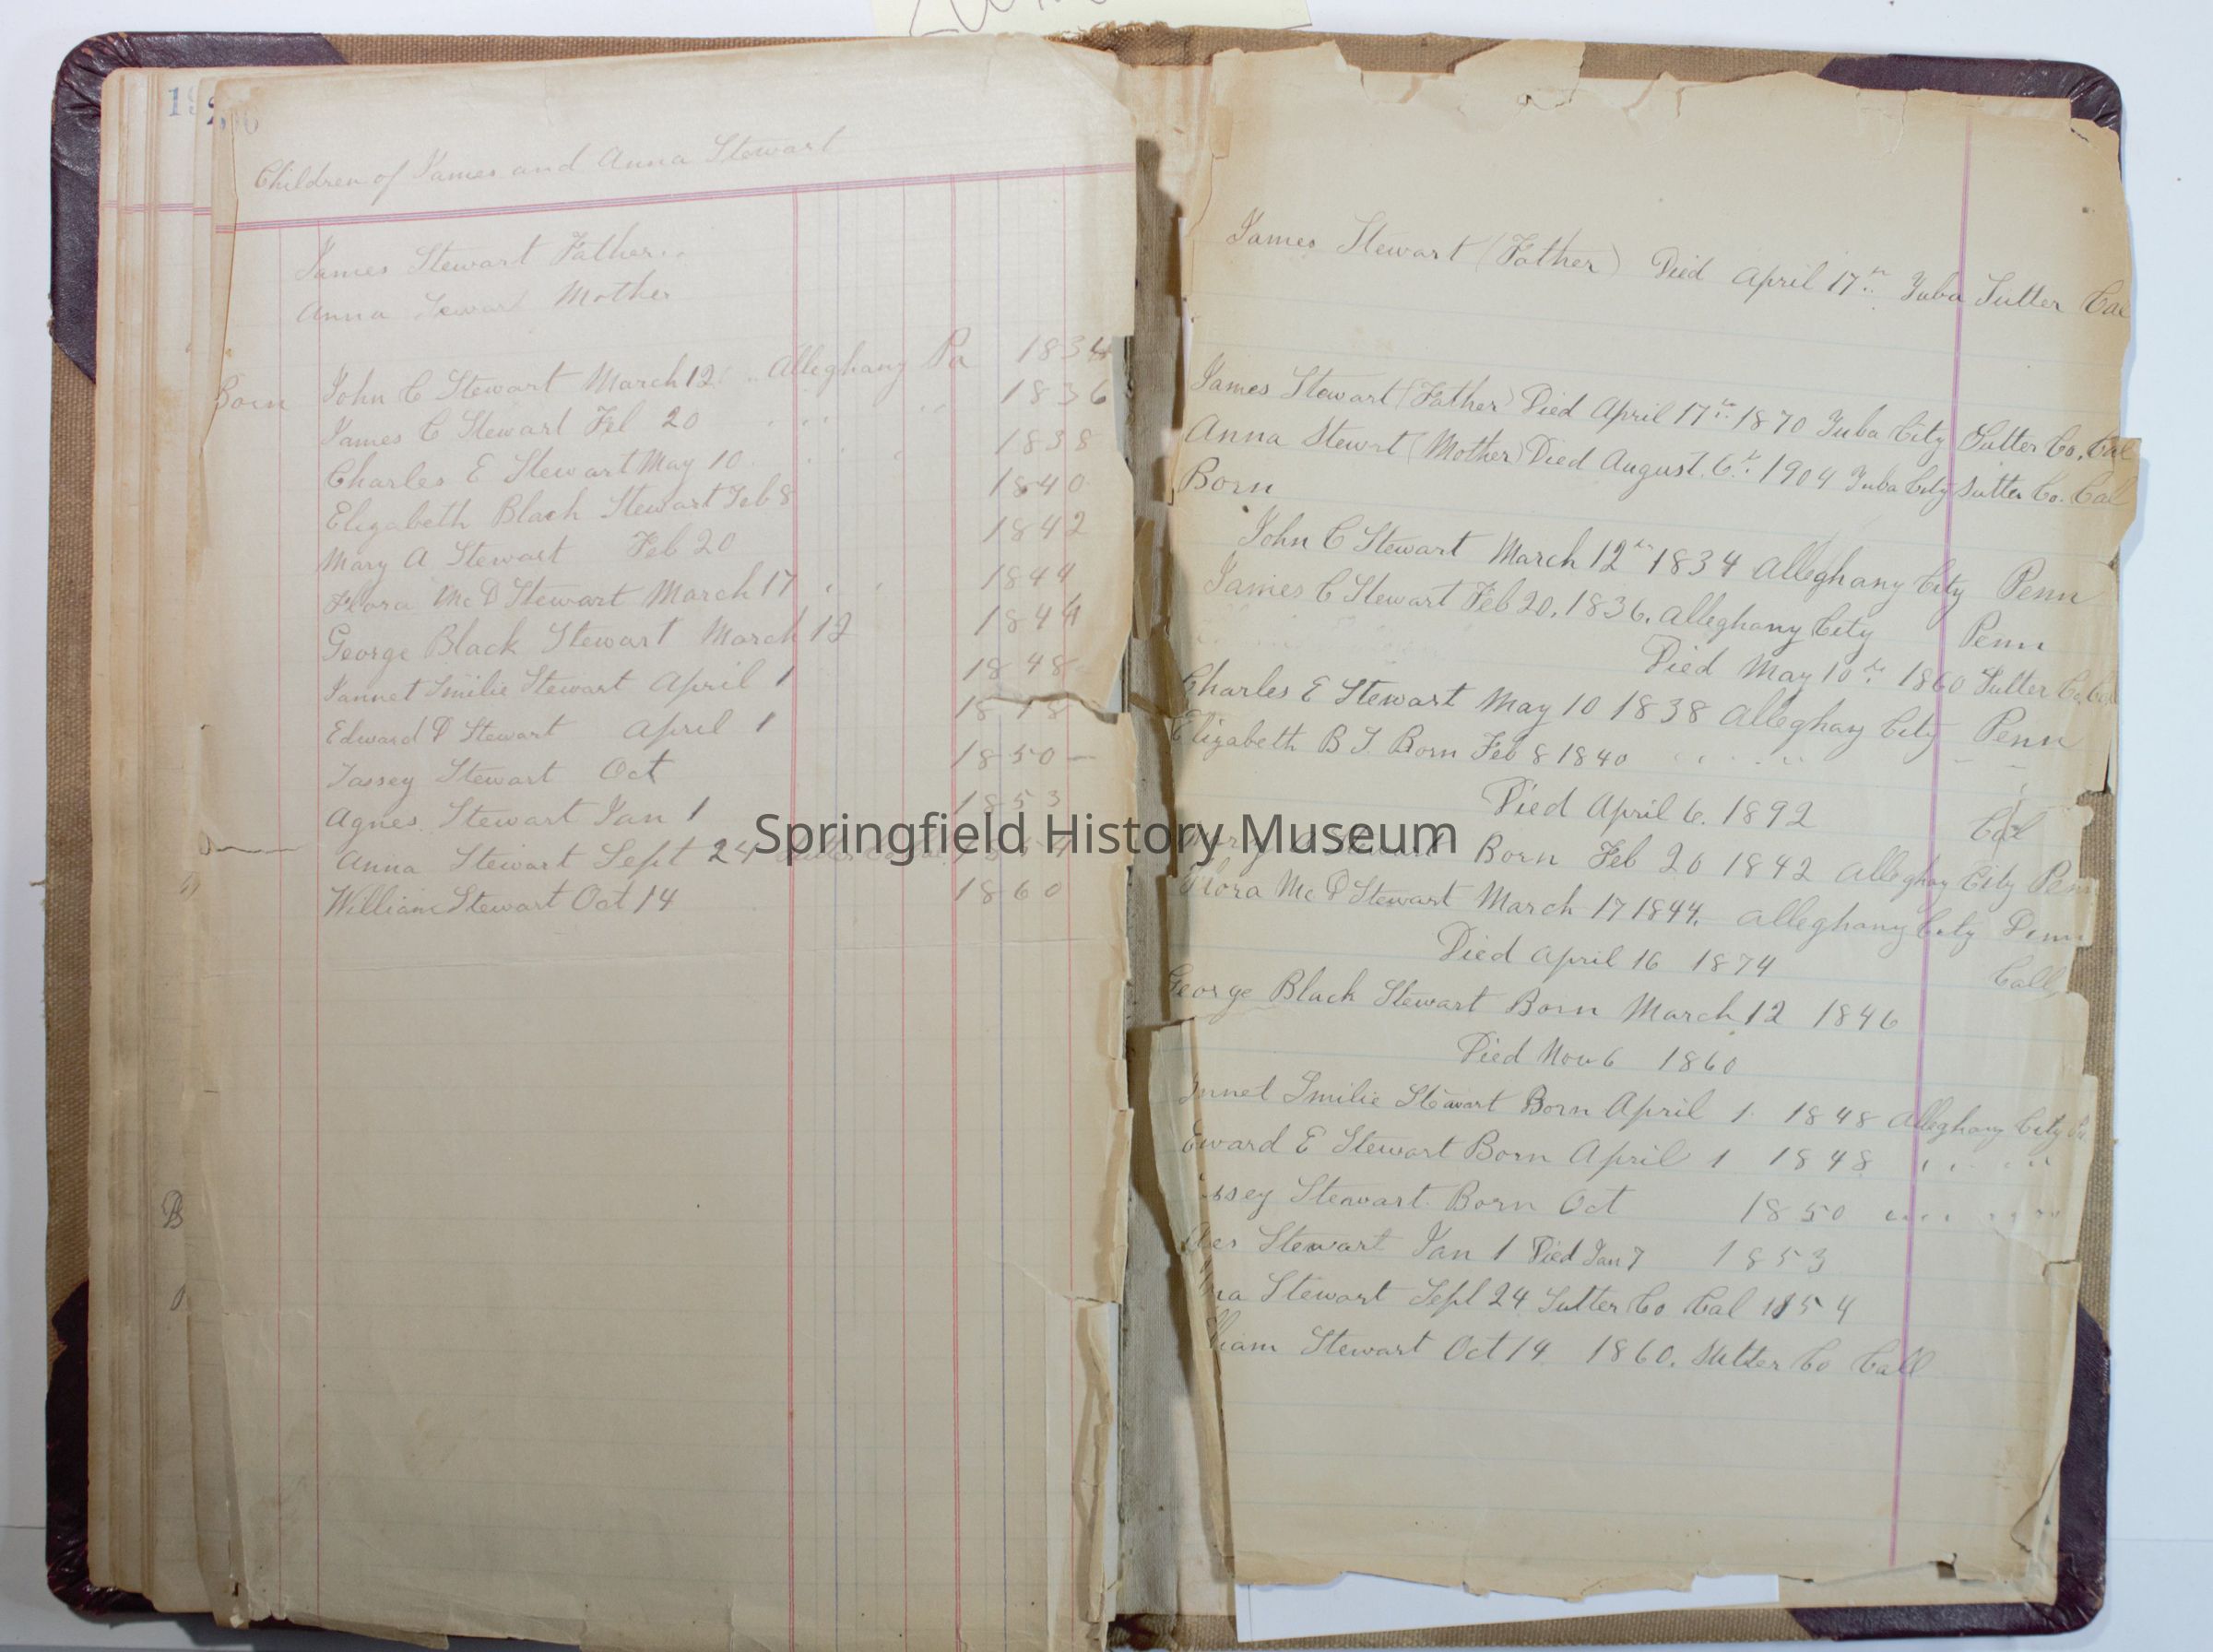 Children of James and Anna Stewart
James Stewart Father
Anna Stewart Mother
Born John C Stewart March 12 Alleghany Pa 1834
James C Stewart Feb 20 " " 1836
Charles E Stewart May 10 1838
Elizabeth Black Stewart Feb 8 1840
Mary A Stewart Feb 20 1842
Flora Mc D Stewart March 17 1844
George Black Stewart March 12 1844
Jannet Smilie Stewart April 1 1848
Edward D Stewart April 1 1848
Tassey Stewart Oct 1850 —
Agnes Stewart Jan 1 1853
Anna Stewart Sept 24
William Stewart Oct 14 1860
James Stewart (Father) Died April 17th Yuba Sutter Cal
James Stewart (Father) Died April 17th 1870 Yuba City Sutter Co. Cal
Anna Stewrt (Mother) Died August. 6th 1904 Yuba City Sutter Co. Cal
Born
John C Stewart March 12th 1834 Alleghany City Penn
James C Stewart Feb 20, 1836, Alleghany City Penn
Died May 10th 1860 Sutter
Charles E Stewart May 10 1838 Alleghay City Penn
Elizabeth B S Born Feb 8 1840
Died April 6. 1892 Cal
Mary A Stewart Born Feb 20 1842 Alleghay City Penn
Flora Mc D Stewart March 17 1844. Alleghany City Penn
Died April 16 1874 Call
George Black Stewart Born March 12 1846
Died Nov 6 1860
nnet Smilie Stewart Born April 1. 1848 Alleghany City
Edward E Stewart Born April 1 1848 " "
ssey Stewart Born Oct 1850
es Stewart Jan 1 Died Jan 7 1853
na Stewart Sept 24 Sutter Co Cal 1854
lliam Stewart Oct 14 1860. Sutter Co Call
B
Springfield History Museum